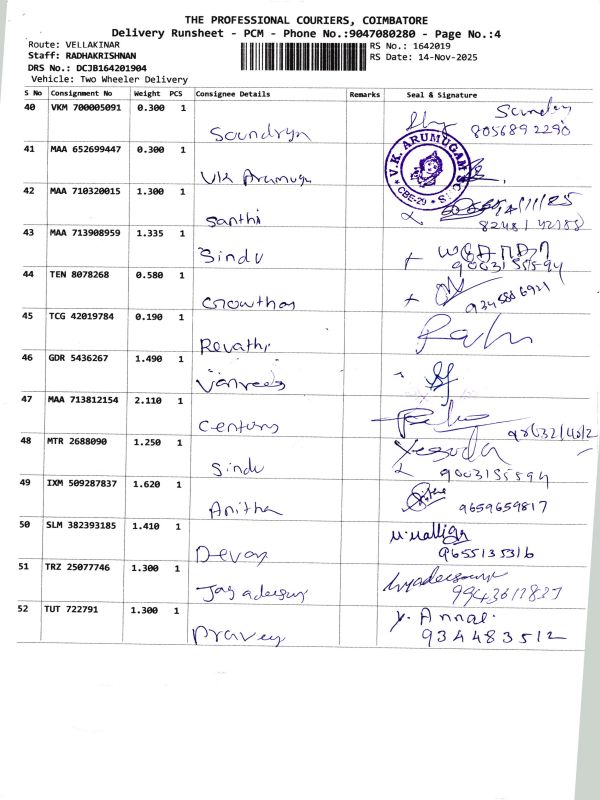 THE PROFESSIONAL COURIERS, COIMBATORE
Delivery Runsheet - PCM - Phone No.:9047080280 - Page No.:4
Route: VELLAKINAR
RS No.: 1642019
Staff: RADHAKRISHNAN
RS Date: 14-Nov-2025
DRS No.: DCJB164201904
Vehicle: Two Wheeler Delivery
S No Consignment No Weight PCS Consignee Details Remarks Seal & Signature
40 VKM 700005091 0.300 1
8056892290
41 MAA 652699447 0.300 1
V.K. ARUMUGAM
CBE-29
42 MAA 710320015 1.300 1
Santhi
14/11/25
43 MAA 713908959 1.335 1
Sindu
9003155594
44 TEN 8078268 0.580 1
Gowtham
9345886921
45 TCG 42019784 0.190 1
Revathi
46 GDR 5436267 1.490 1
47 MAA 713812154 2.110 1
Century
48 MTR 2688090 1.250 1
Sindu
Yesuda
9003155594
49 IXM 509287837 1.620 1
Anitha
9659659817
50 SLM 382393185 1.410 1
9655135316
51 TRZ 25077746 1.300 1
52 TUT 722791 1.300 1
Praveen
Y. Annal.
934483512